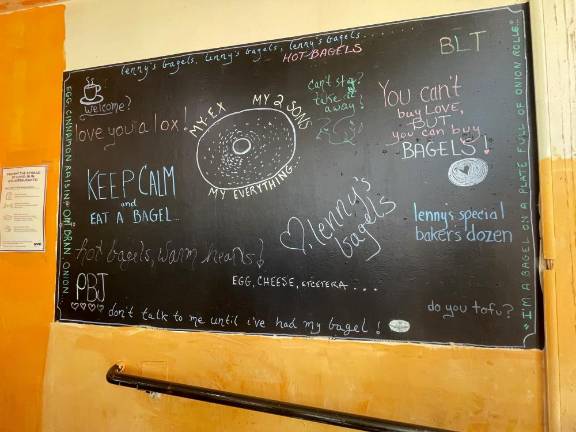 lenny's bagels, lenny's bagels, lenny's bagels......
HOT BAGELS
BLT
welcome?
love you a lox!
MY EX
MY 2 SONS
MY EVERYTHING...
can't stay?
take it
away!
You can't
buy LOVE,
BUT
you can buy
BAGELS!
KEEP CALM
and
EAT A BAGEL...
lenny's
bagels
lenny's special
baker's dozen
hot bagels, warm hearts!
EGG, CHEESE, etcetera....
PBJ
do you tofu?
don't talk to me until i've had my bagel!
EGG CINNAMON RAISIN
ONION...
"I'M A BAGEL ON A PLATE FULL OF ONION ROLLS."